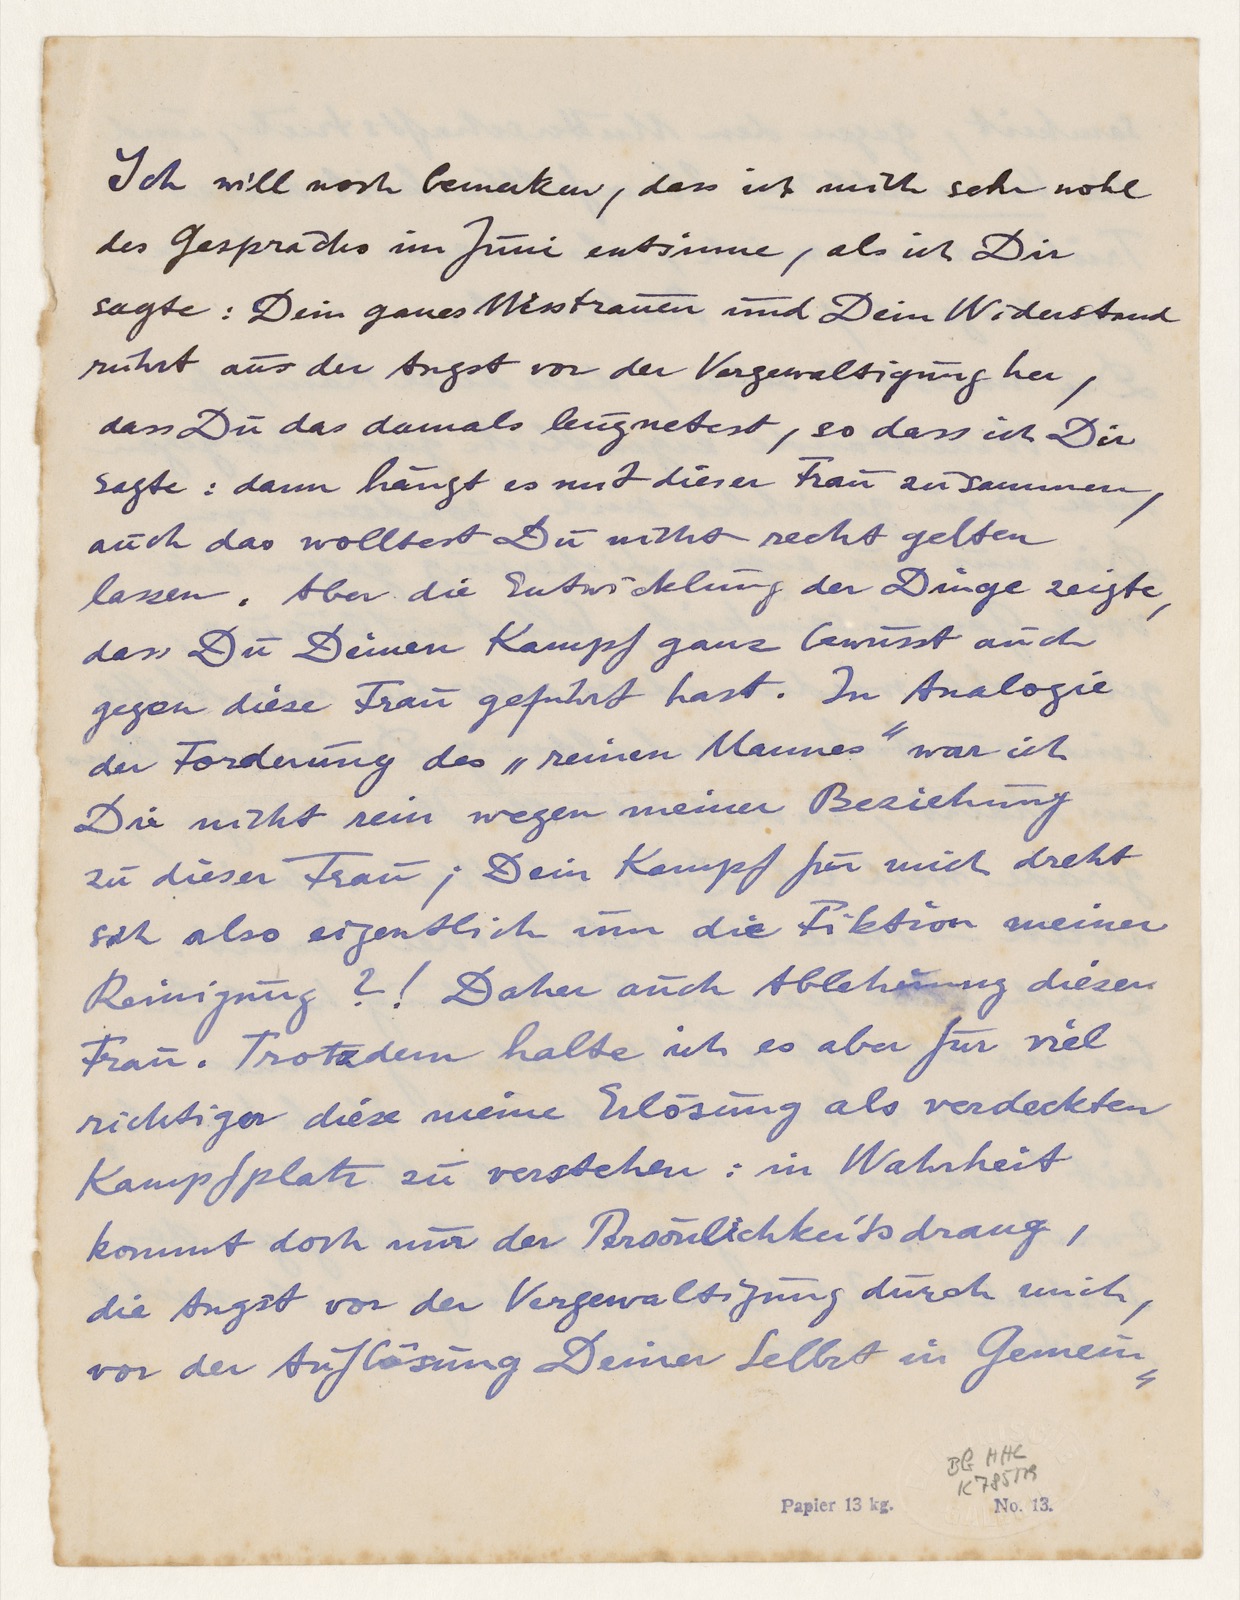 Ich will noch bemerken, dass ich mich sehr wohl
des Gesprächs im Juni entsinne, als ich Dir
sagte: Dein ganzes Misstrauen und Dein Widerstand
rührt aus der Angst vor der Vergewaltigung her,
dass Du das damals leugnetest, so dass ich Dir
sagte: dann hängt es mit dieser Frau zusammen,
auch das wolltest Du nicht recht gelten
lassen. Aber die Entwicklung der Dinge zeigte,
dass Du Deinen Kampf ganz bewusst auch
gegen diese Frau geführt hast. In Analogie
der Forderung des „reinen Mannes" war ich
Dir nicht rein wegen meiner Beziehung
zu dieser Frau; Dein Kampf für mich dreht
sich also eigentlich um die Fiktion meiner
Reinigung?! Daher auch Ablehnung dieser
Frau. Trotzdem halte ich es aber für viel
richtiger diese meine Erlösung als verdeckten
Kampfplatz zu verstehen: in Wahrheit
kommt doch nur der Persönlichkeitsdrang,
die Angst vor der Vergewaltigung durch mich,
vor der Auflösung Deiner Selbst in Gemein„
BG HHC
K 785/79
Papier 13 kg. No. 13.